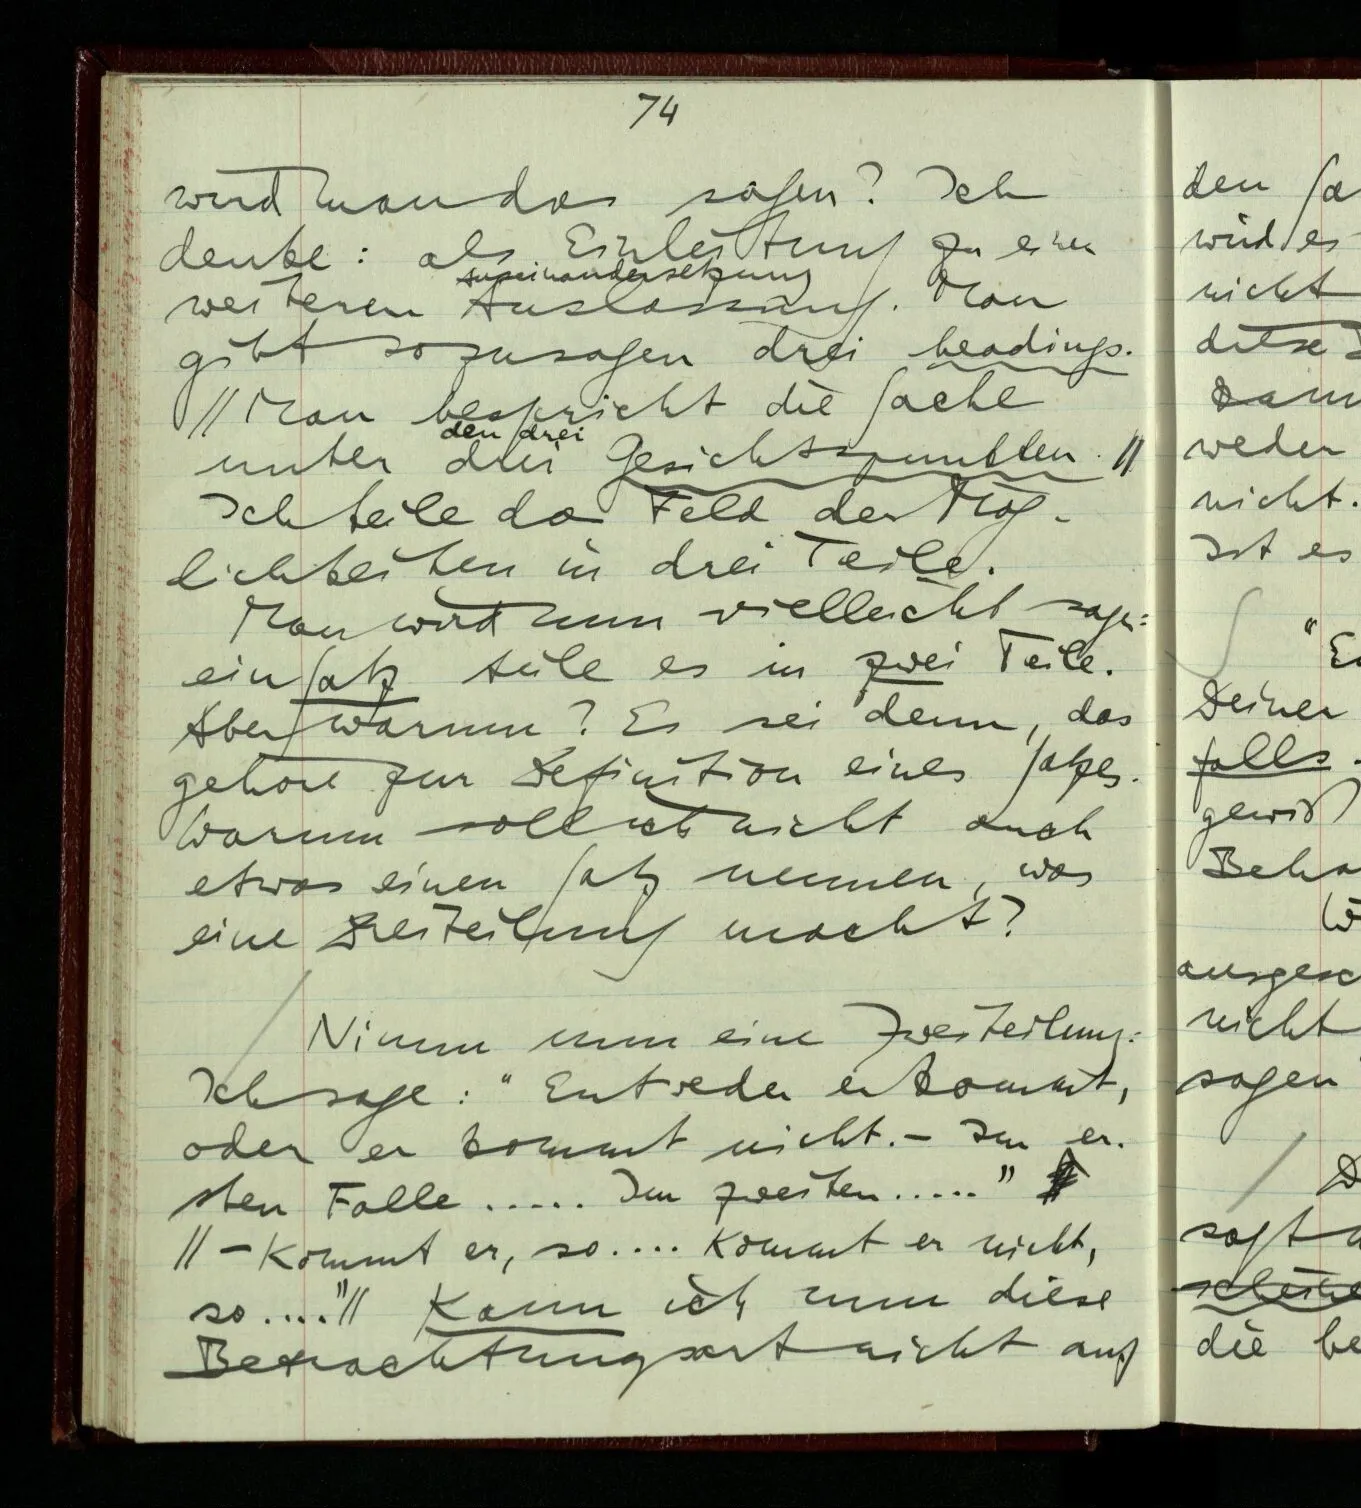 74
wird man das sagen? Ich
denke: als Einleitung zu einer
Auseinandersetzung
weiteren Auslassung. Man
gibt sozusagen drei headings.
// Man bespricht die Sache
den drei
unter drei Gesichtspunkten. //
Ich teile das Feld der Mög-
lichkeiten in drei Teile.
Man wird nun vielleicht sagen:
ein Satz teile es in zwei Teile.
Aber warum? Es sei denn, das
gehöre zur Definition eines Satzes.
Warum soll ich nicht auch
etwas einen Satz nennen, was
eine Dreiteilung macht?
Nimm nun eine Zweiteilung:
Ich sage: "Entweder er kommt,
oder er kommt nicht. – Im er-
sten Falle ..... Im zweiten ....."
// – Kommt er, so .... Kommt er nicht,
so ...."// Kann ich nun diese
Betrachtungsart nicht auf
den
wird es
nicht
diese
weder
nicht.
Ist es
Deiner
falls
gewiß
nicht
sagen
die